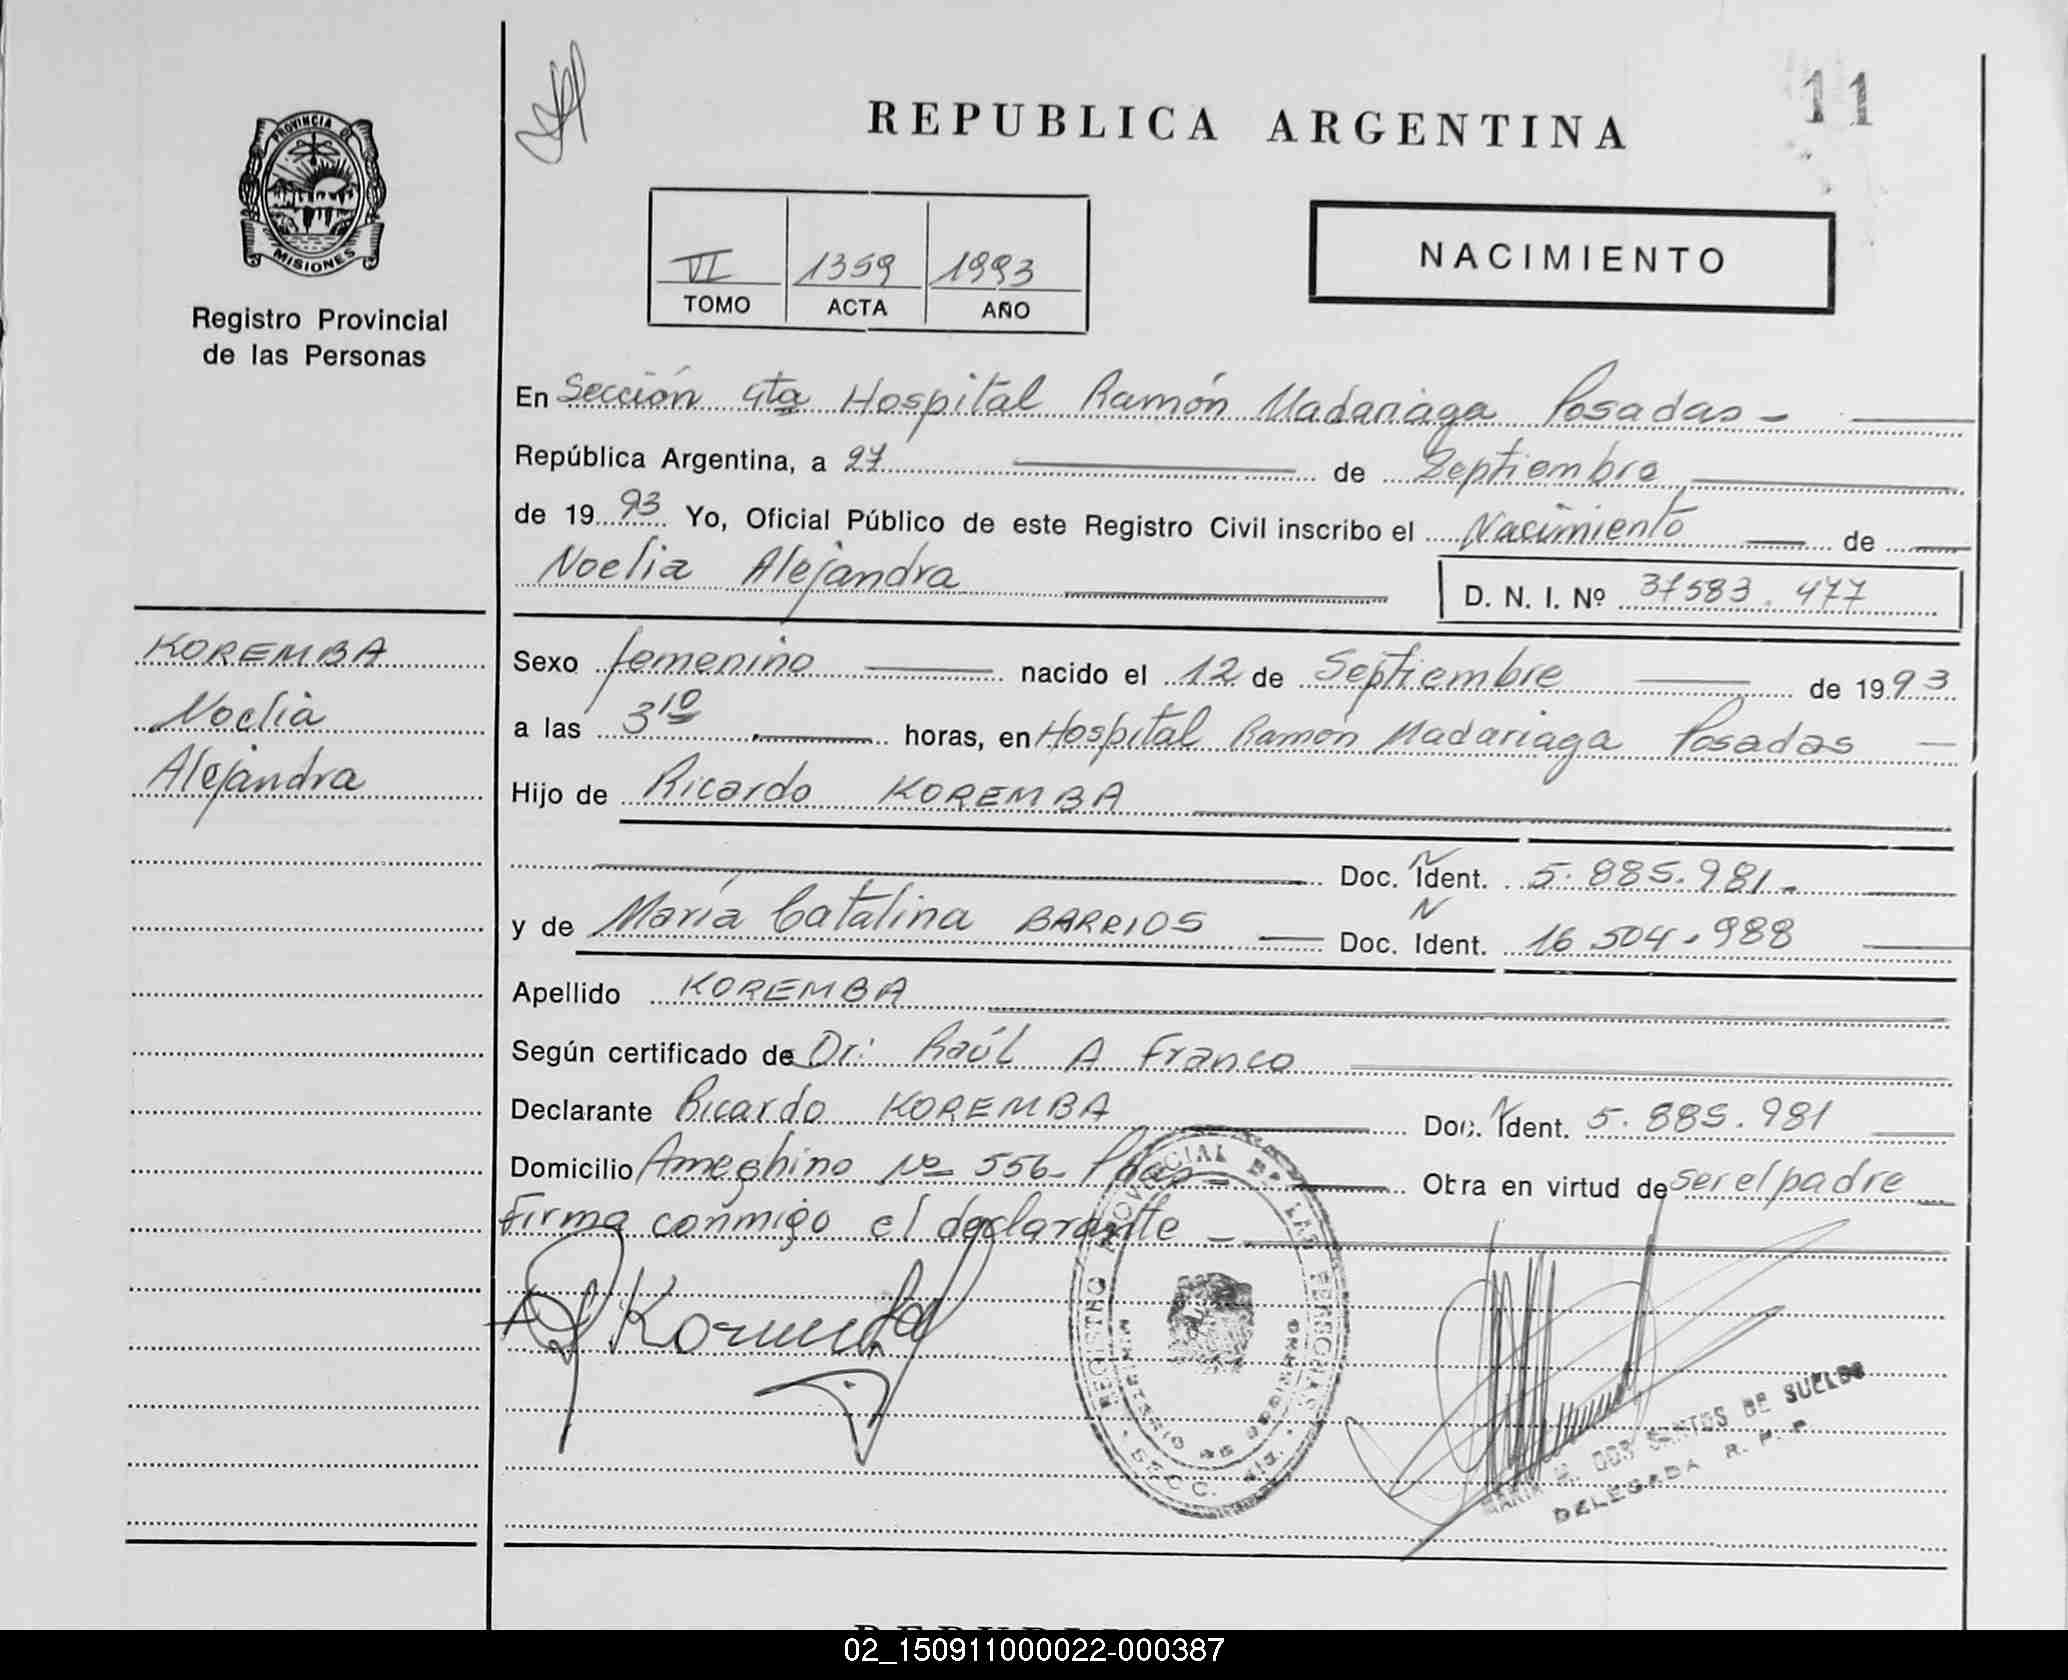 REPUBLICA ARGENTINA
11
PROVINCIA DE
MISIONES
Registro Provincial
de las Personas
VI 1359 1993
TOMO ACTA AÑO
NACIMIENTO
En Sección 4ta Hospital Ramón Madariaga Posadas -
República Argentina, a 27 de Septiembre
de 1993 Yo, Oficial Público de este Registro Civil inscribo el Nacimiento de
Noelia Alejandra D. N. I. Nº 37583.477
KOREMBA
Noelia
Alejandra
Sexo femenino nacido el 12 de Septiembre de 1993
a las 3 10 horas, en Hospital Ramón Madariaga Posadas
Hijo de Ricardo KOREMBA
Doc. Ident. 5.885.981.
y de María Catalina BARRIOS Doc. Ident. 16.504.988
Apellido KOREMBA
Según certificado de Dr. Raúl A Franco
Declarante Ricardo KOREMBA Doc. Ident. 5.885.981
Domicilio Ameghino Nº 556 - Pdas - Obra en virtud de ser el padre
Firma conmigo el declarante -
REGISTRO PROVINCIAL DE LAS PERSONAS
MINISTERIO DE GOBIERNO
SECC.
MARIA DOS SANTOS DE SUELDO
DELEGADA R. P. P.
02_150911000022-000387